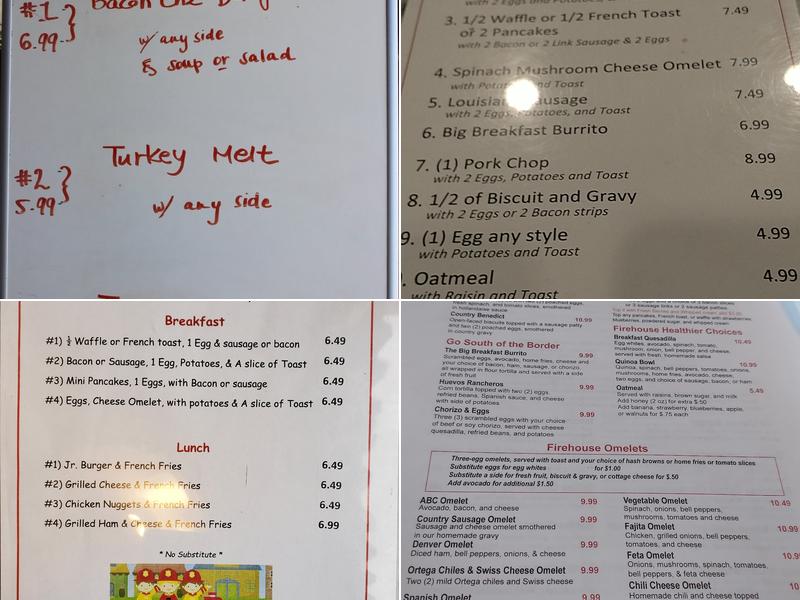 #1
6.99
w/ any side
& soup or salad
Turkey Melt
#2
5.99
w/ any side
3. 1/2 Waffle or 1/2 French Toast 7.49
or 2 Pancakes
with 2 Bacon or 2 Link Sausage & 2 Eggs
4. Spinach Mushroom Cheese Omelet 7.99
and Toast
5. 7.49
with 2 Eggs, Potatoes, and Toast
6. Big Breakfast Burrito 6.99
7. (1) Pork Chop 8.99
with 2 Eggs, Potatoes and Toast
8. 1/2 of Biscuit and Gravy 4.99
with 2 Eggs or 2 Bacon strips
9. (1) Egg any style 4.99
with Potatoes and Toast
Oatmeal 4.99
with Raisin and Toast
Breakfast
#1) ½ Waffle or French toast, 1 Egg & sausage or bacon 6.49
#2) Bacon or Sausage, 1 Egg, Potatoes, & A slice of Toast 6.49
#3) Mini Pancakes, 1 Eggs, with Bacon or sausage 6.49
#4) Eggs, Cheese Omelet, with potatoes & A slice of Toast 6.49
Lunch
#1) Jr. Burger & French Fries 6.49
#2) Grilled Cheese & French Fries 6.49
#3) Chicken Nuggets & French Fries 6.49
#4) Grilled Ham & Cheese & French Fries 6.99
* No Substitute *
in hollandaise sauce
Country Benedict 10.99
Open-faced biscuits topped with a sausage patty
and two (2) poached eggs, smothered
in country gravy
Go South of the Border
The Big Breakfast Burrito 9.99
Scrambled eggs, avocado, home fries, cheese and
your choice of bacon, ham, sausage, or chorizo,
all wrapped in flour tortilla and served with a side
of fresh fruit
Huevos Rancheros 9.99
Corn tortilla topped with two (2) eggs,
refried beans, Spanish sauce, and cheese
with side of potatoes
Chorizo & Eggs 9.99
Three (3) scrambled eggs with your choice
of beef or soy chorizo, served with cheese
quesadilla, refried beans, and potatoes
or 3 sausage links or 2 sausage patties.
Top any pancakes, French toast, or waffle with strawberries,
blueberries, powdered sugar, and whipped cream
Firehouse Healthier Choices
Breakfast Quesadilla 10.49
Egg whites, avocado, spinach, tomato,
mushroom, onion, bell pepper, and cheese,
served with fresh, homemade salsa
Quinoa Bowl 10.95
Quinoa, spinach, bell peppers, tomatoes, onions,
mushrooms, home fries, avocado, cheese,
two eggs, and choice of sausage, bacon, or ham
Oatmeal 5.49
Served with raisins, brown sugar, and milk
Add honey (2 oz) for extra $.50
Add banana, strawberry, blueberries, apple,
or walnuts for $.75 each
Firehouse Omelets
Three-egg omelets, served with toast and your choice of hash browns or home fries or tomato slices
Substitute eggs for egg whites for $1.00
Substitute a side for fresh fruit, biscuit & gravy, or cottage cheese for $.50
Add avocado for additional $1.50
ABC Omelet 9.99
Avocado, bacon, and cheese
Country Sausage Omelet 9.99
Sausage and cheese omelet smothered
in our homemade gravy
Denver Omelet 9.99
Diced ham, bell peppers, onions, & cheese
Ortega Chiles & Swiss Cheese Omelet 9.99
Two (2) mild Ortega chiles and Swiss cheese
Spanish Omelet
Vegetable Omelet 10.49
Spinach, onions, bell peppers,
mushrooms, tomatoes and cheese
Fajita Omelet 10.99
Chicken, grilled onions, bell peppers,
tomatoes, and cheese
Feta Omelet 10.9
Onions, mushrooms, spinach, tomatoes,
bell peppers, & feta cheese
Chili Cheese Omelet 10.
Homemade chili and cheese topped